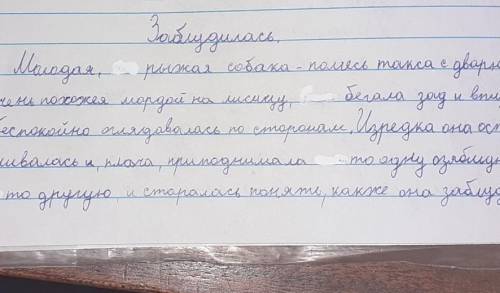 Заблудилась.
Молодая, рыжая собака - помесь такса с дворн
чень похожея мордой на лисицу, бегала зад и впе
беспокойно оглядовалась по сторонам. Изредка она ост
нивалась и, плача, приподнимала то одну озябшую
то другую и старалась понять, какже она заблуд